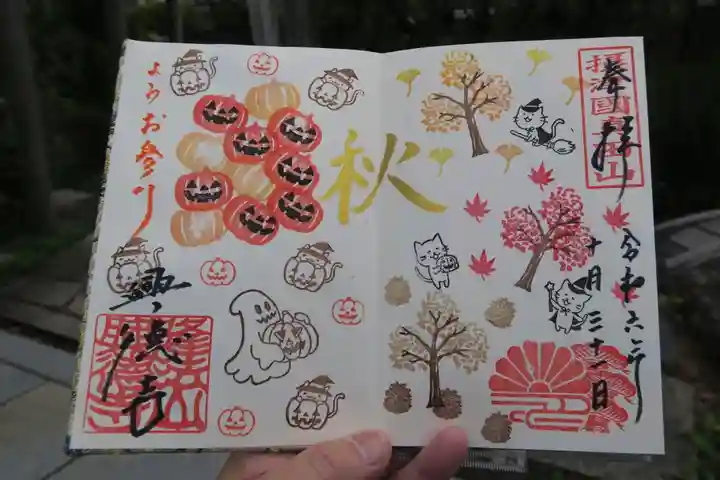 摂津國真田山
奉拝
令和六年
十月三十一日
秋
ようお参り
興徳寺